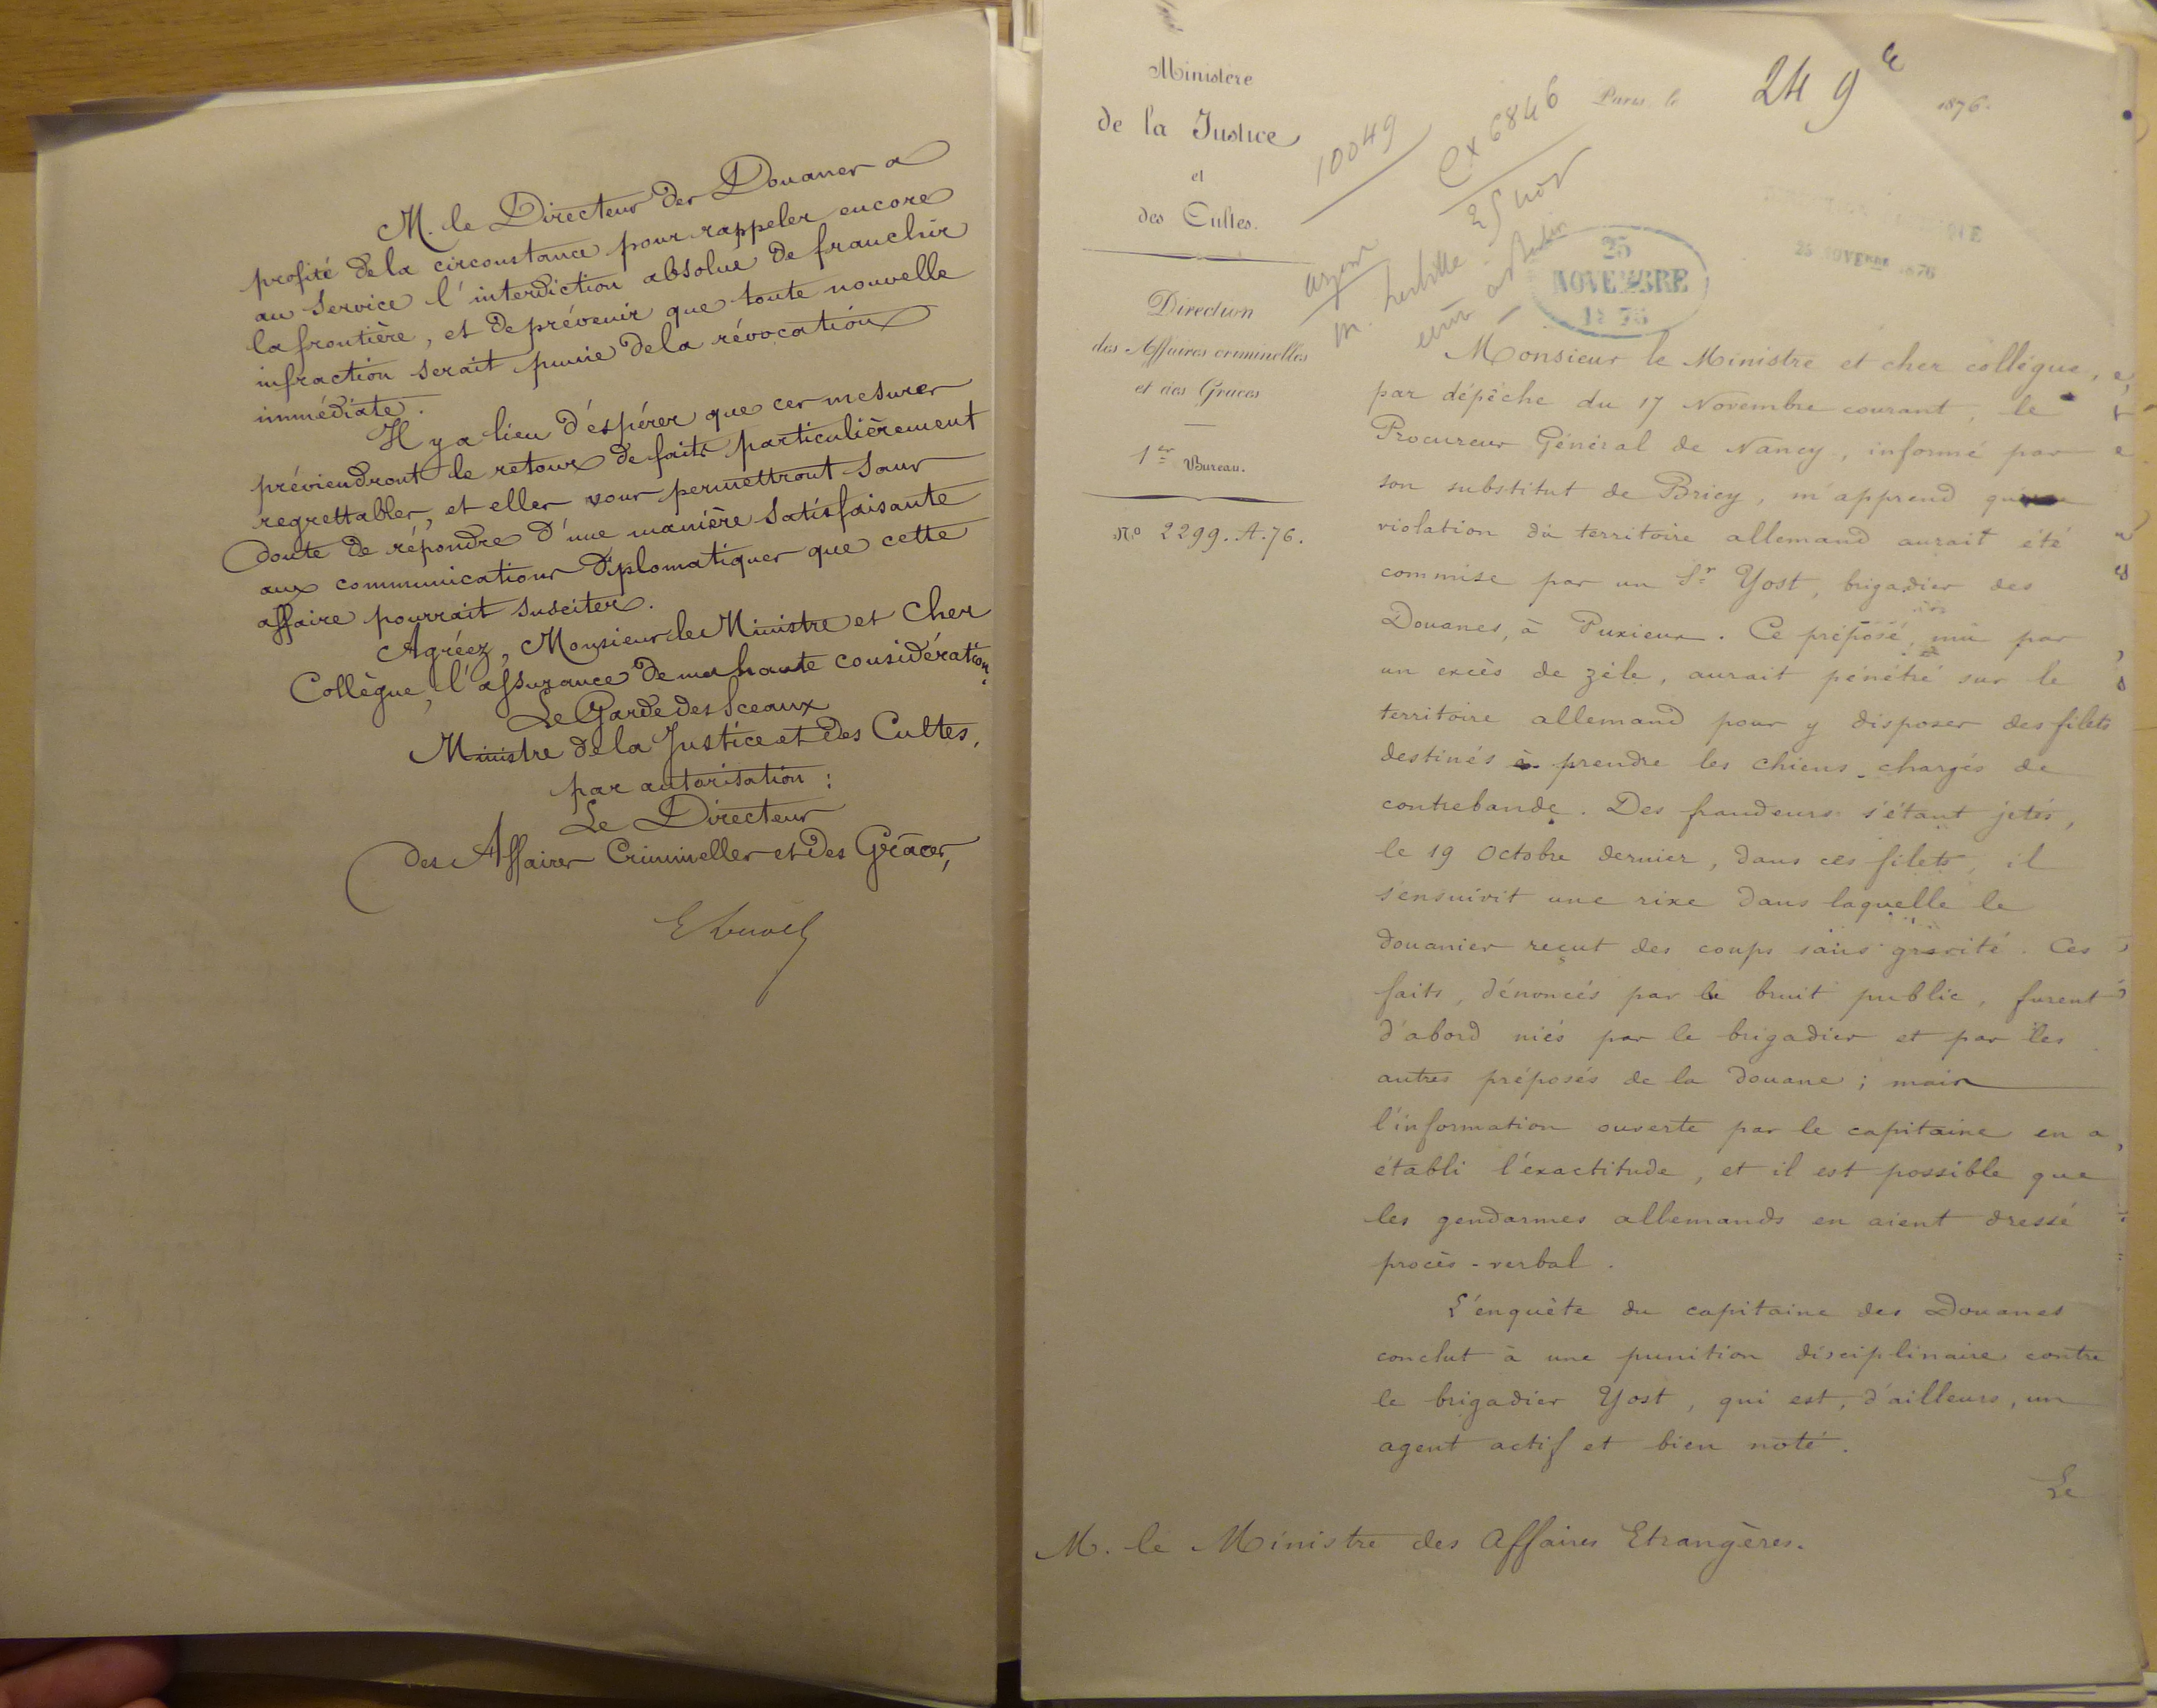 M. le Directeur des Douanes a
profité de la circonstance pour rappeler encore
au service l'interdiction absolue de franchir
la frontière, et de prévenir que toute nouvelle
infraction serait punie de la révocation
immédiate.
Il y a lieu d'éspérer que ces mesures
préviendront le retour de faits particulièrement
regrettables, et elles vous permettront sans
doute de répondre d'une manière satisfaisante
aux communications diplomatiques que cette
affaire pourrait susciter.
Agréez, Monsieur le Ministre et Cher
Collègue, l'assurance de ma haute considération.
Le Garde des Sceaux
Ministre de la Justice et des Cultes,
par autorisation :
Le Directeur
des Affaires Criminelles et des Grâces,
Ministère
de la Justice
et
des Cultes.
Direction
des Affaires criminelles
et des Graces
1er Bureau.
No 2299. A. 76.
10049
Cx 6846
25 nov
Paris, le 24 9bre 1876.
25
NOVEMBRE
1876
25 NOVEMBRE 1876
Monsieur le Ministre et cher collègue,
par dépêche du 17 Novembre courant, le
Procureur Général de Nancy, informé par
son substitut de Briey, m'apprend
violation du territoire allemand aurait été
commise par un Sr Yost, brigadier des
Douanes, à Puxieux. Ce préposé, mû par
un excès de zèle, aurait pénétré sur le
territoire allemand pour y disposer des filets
destinés à prendre les chiens chargés de
contrebande. Des fraudeurs s'étant jetés,
le 19 Octobre dernier, dans ces filets, il
s'ensuivit une rixe dans laquelle le
douanier reçut des coups sans gravité. Ces
faits, dénoncés par le bruit public, furent
d'abord niés par le brigadier et par les
autres préposés de la douane ; mais
l'information ouverte par le capitaine en a
établi l'exactitude, et il est possible que
les gendarmes allemands en aient dressé
procès-verbal.
L'enquête du capitaine des Douanes
conclut à une punition disciplinaire contre
le brigadier Yost, qui est, d'ailleurs, un
agent actif et bien noté.
Le
M. le Ministre des Affaires Etrangères.